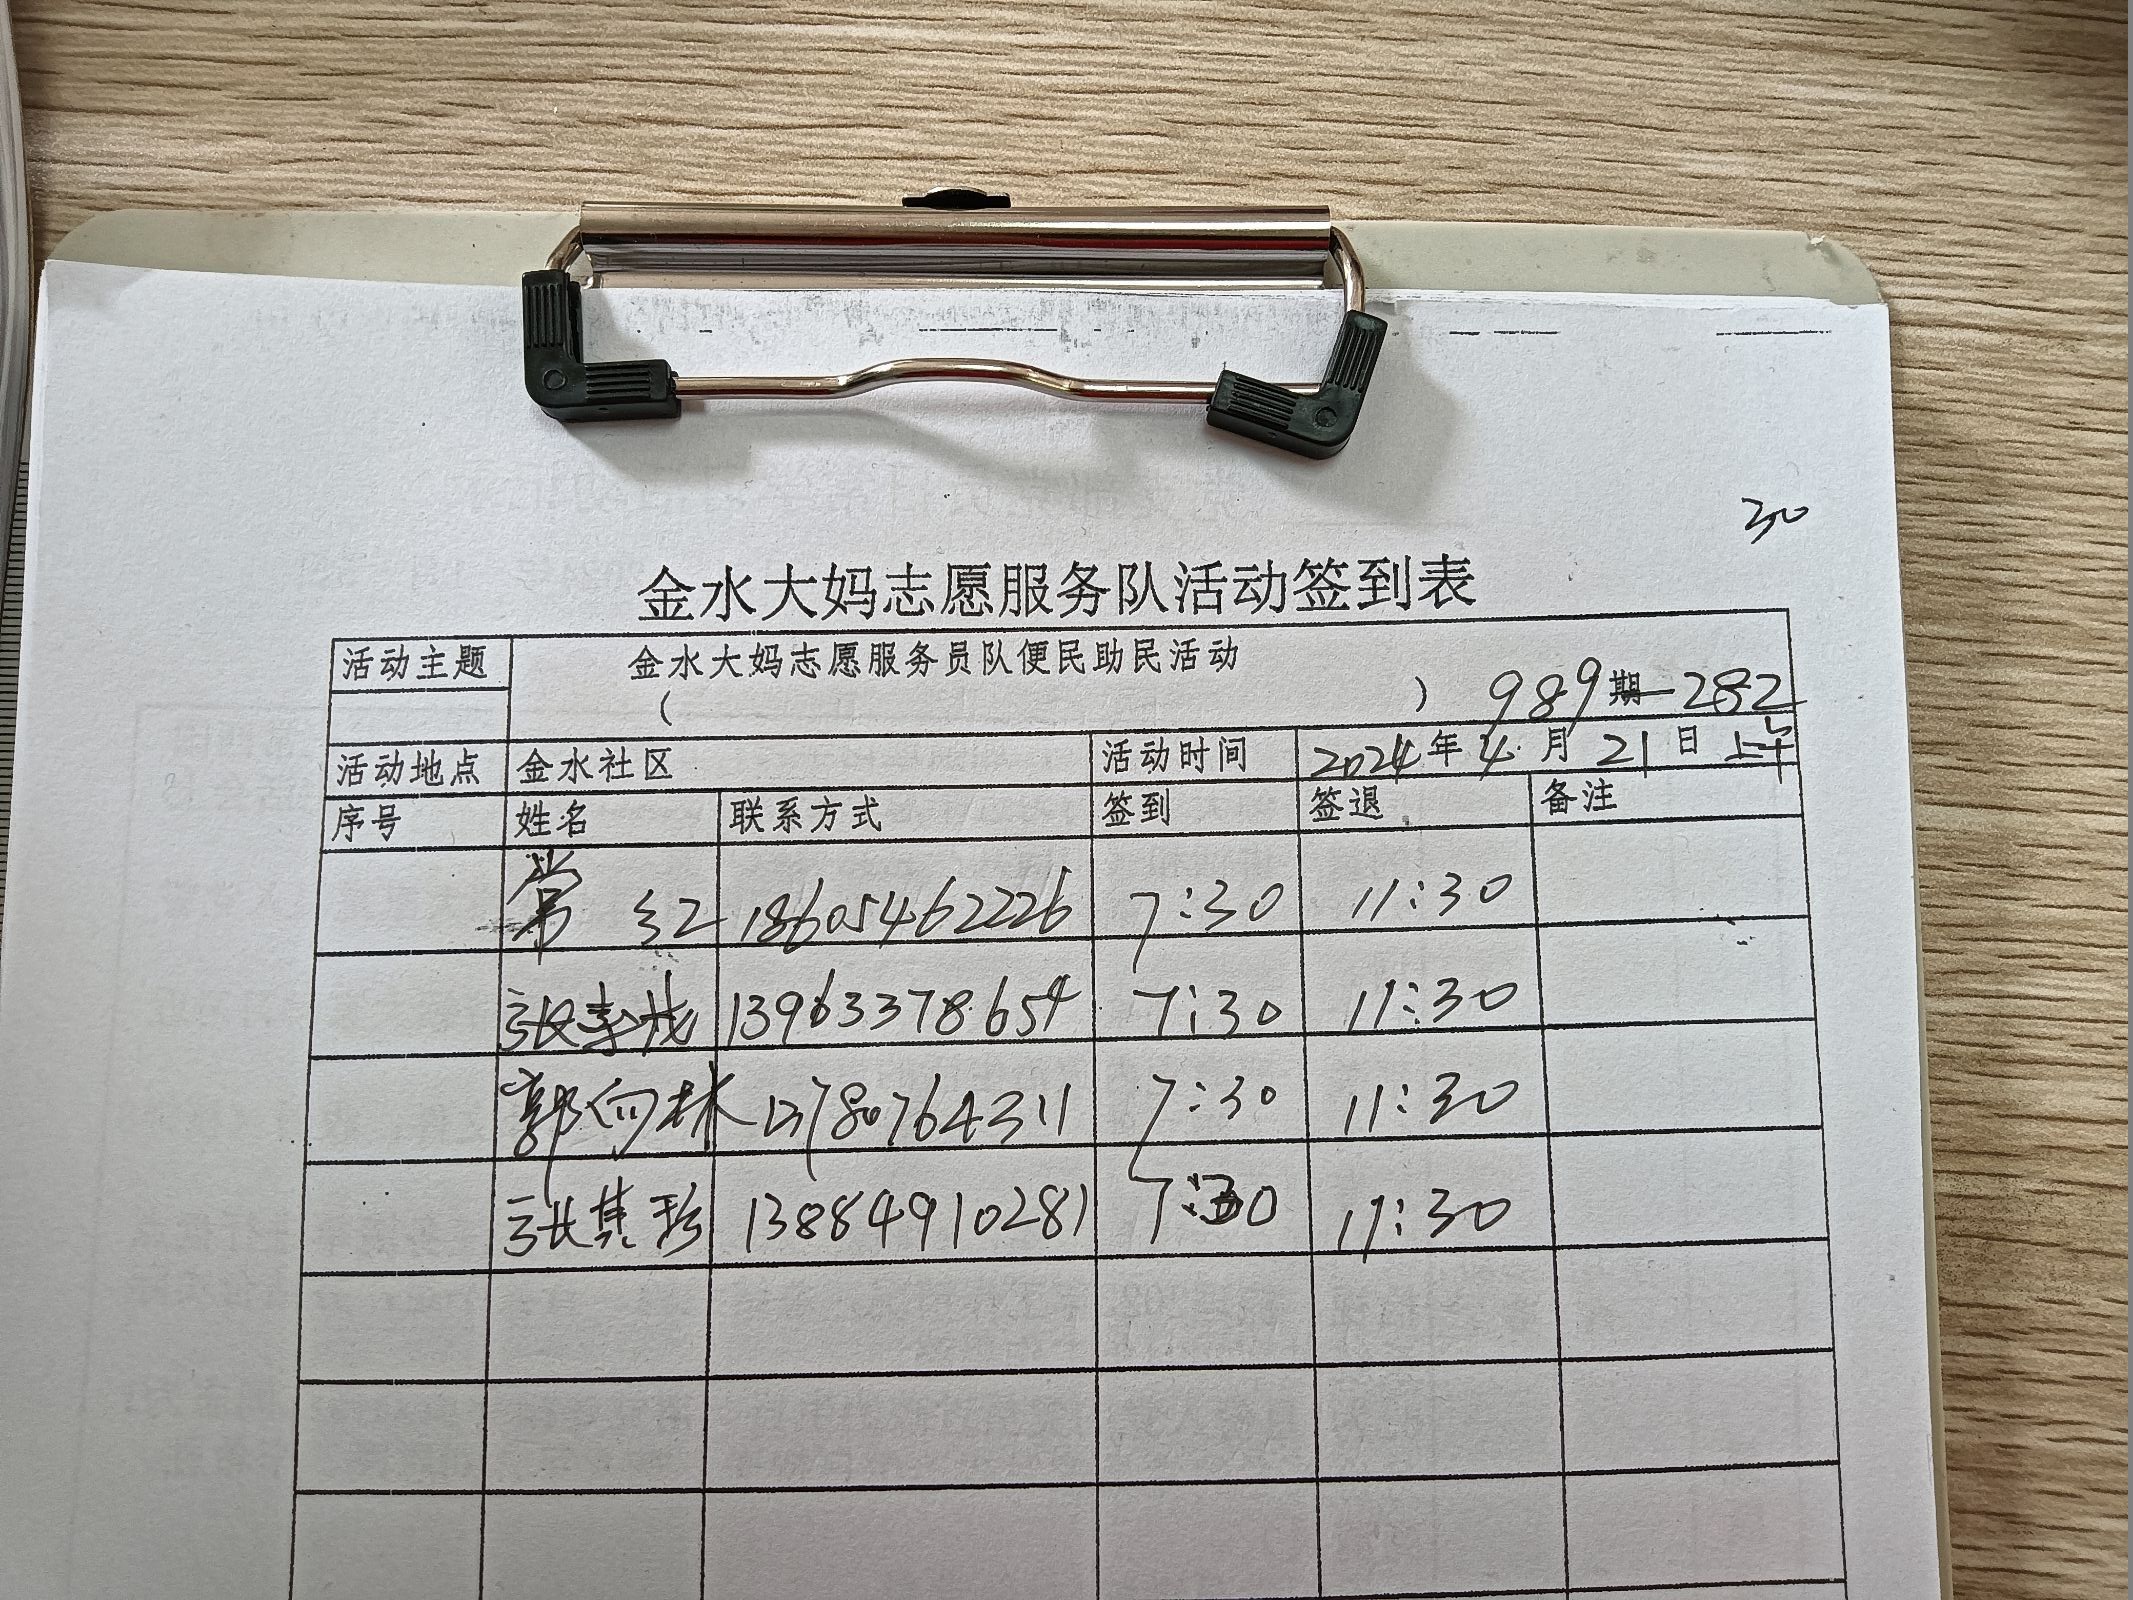 30
金水大妈志愿服务队活动签到表
活动主题 金水大妈志愿服务员队便民助民活动
( ) 989期-282
活动地点 金水社区 活动时间 2024年4月21日上午
序号 姓名 联系方式 签到 签退 备注
常红 18605462226 7:30 11:30
张 13963378654 7:30 11:30
郭向林 13780764311 7:30 11:30
张其珍 13884910281 7:30 11:30